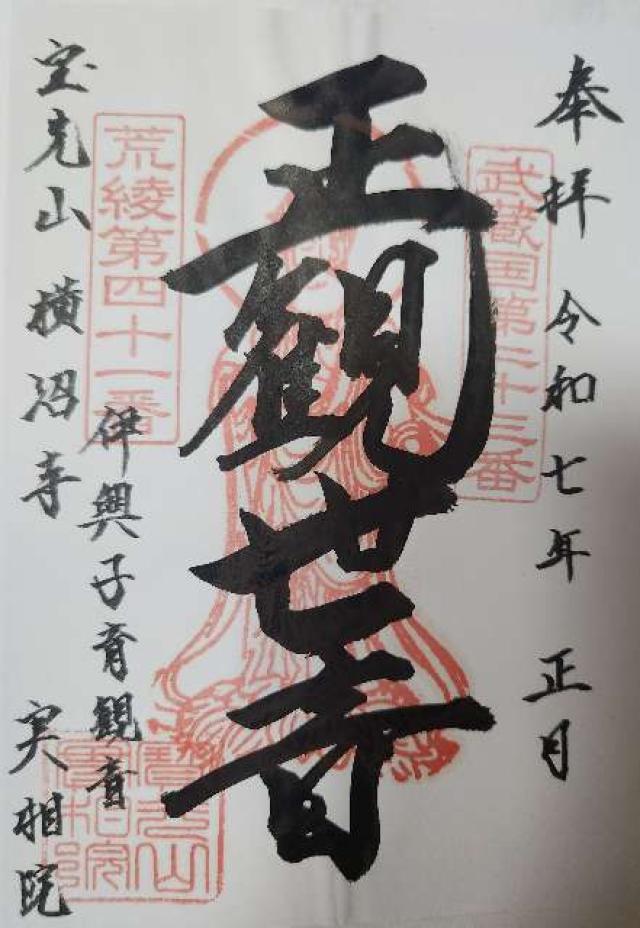 奉拝 令和七年 正月
武蔵国第二十三番
正觀世音
荒綾第四十一番
伊興子育観音
宝光山 横沼寺 実相院
寶光山實相院